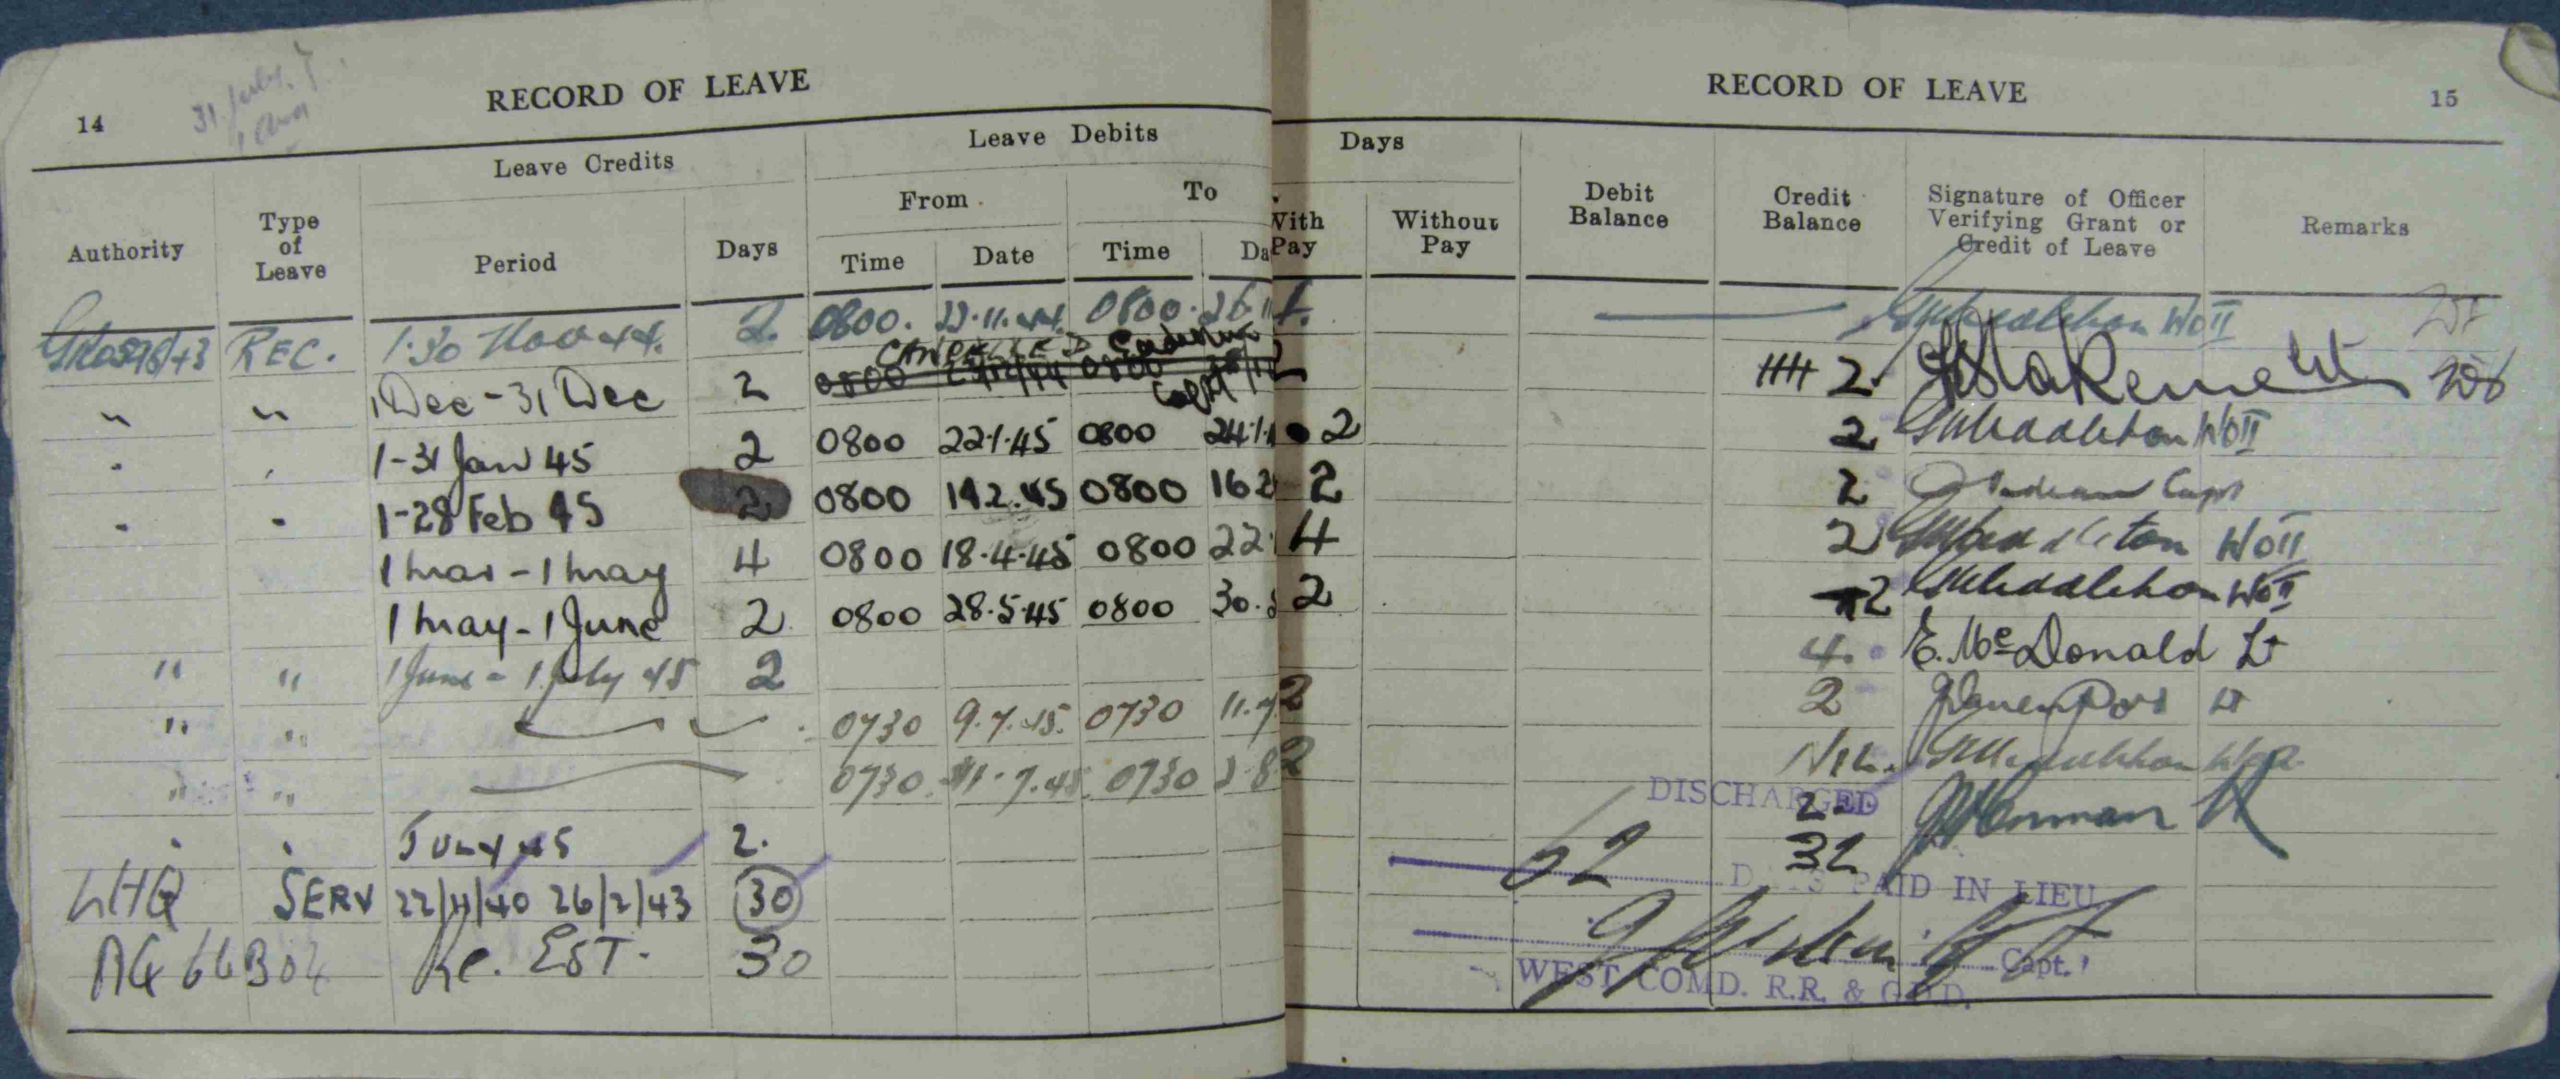 14
31 July
RECORD OF LEAVE
Leave Credits
Leave Debits
From
To
Authority
Type of Leave
Period
Days
Time
Date
Time
Da
REC. 1-30 Nov 44. 2. 0800. 22.11.44. 0800. 26.11
CANCELLED
" " 1 Dec - 31 Dec 2 0800 0800
Capt
1-31 Jan 45 2 0800 22.1.45 0800 24.1.
1-28 Feb 45 2 0800 14.2.45 0800 16.2
1 Mar - 1 May 4 0800 18.4.45 0800 22
1 May - 1 June 2 0800 28.5.45 0800 30.5
" " 1 June - 1 July 45 2
" " 0730 9.7.45. 0730 11.7
" " 0730 31.7.45. 0730 2.8
July 45 2.
LHQ SERV 22/11/40 26/2/43 30
AG 66304 Re. EST. 30
RECORD OF LEAVE
15
Days
With Pay
Without Pay
Debit Balance
Credit Balance
Signature of Officer Verifying Grant or Credit of Leave
Remarks
4. Middleton WOII
2 2 Lt
2 2 Middleton WOII
2 2 Capt
4 2 Middleton WOII
2 2 Middleton WOII
4. E. McDonald Lt
2 2 Davenport Lt
2 NIL. Middleton WOII
DISCHARGED
2 Norman Lt
62 32
DAYS PAID IN LIEU
Capt.
WEST COMD. R.R. & G.D.D.